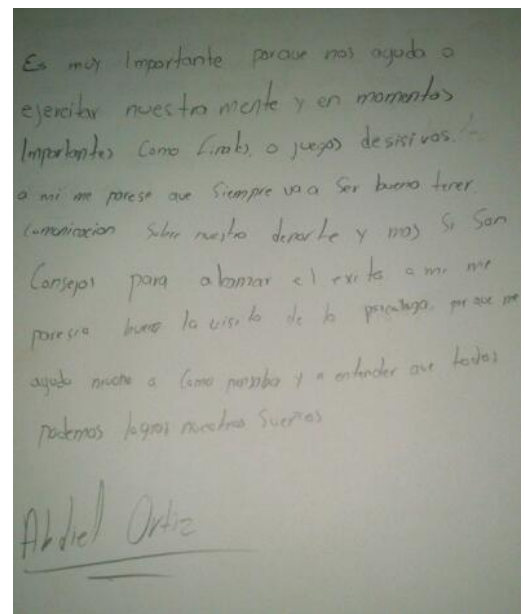 Es muy Importante porque nos ayuda a
ejercitar nuestra mente y en momentos
Importantes como finales, o juegos desisivos.
a mi me parese que Siempre va a Ser bueno tener
comunicacion Sobre nuestro deporte y mas Si Son
Consejos para alcanzar el exito a mi me
parecio bueno la visita de la psicologa. por que me
ayudo mucho a como pensaba y a entender que todos
podemos lograr nuestros Sueños
Abdiel Ortiz